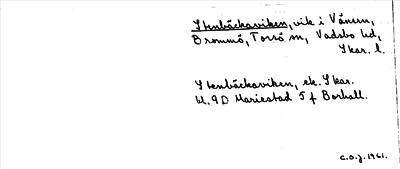 Stenbäckaviken, vik i Vänern,
Brommö, Torsö sn, Vadsbo hd,
Skar. l.
Stenbäckaviken, ek. Skar.
bl. 9D Mariestad 5 f Borhall.
C.O.J. 1961.